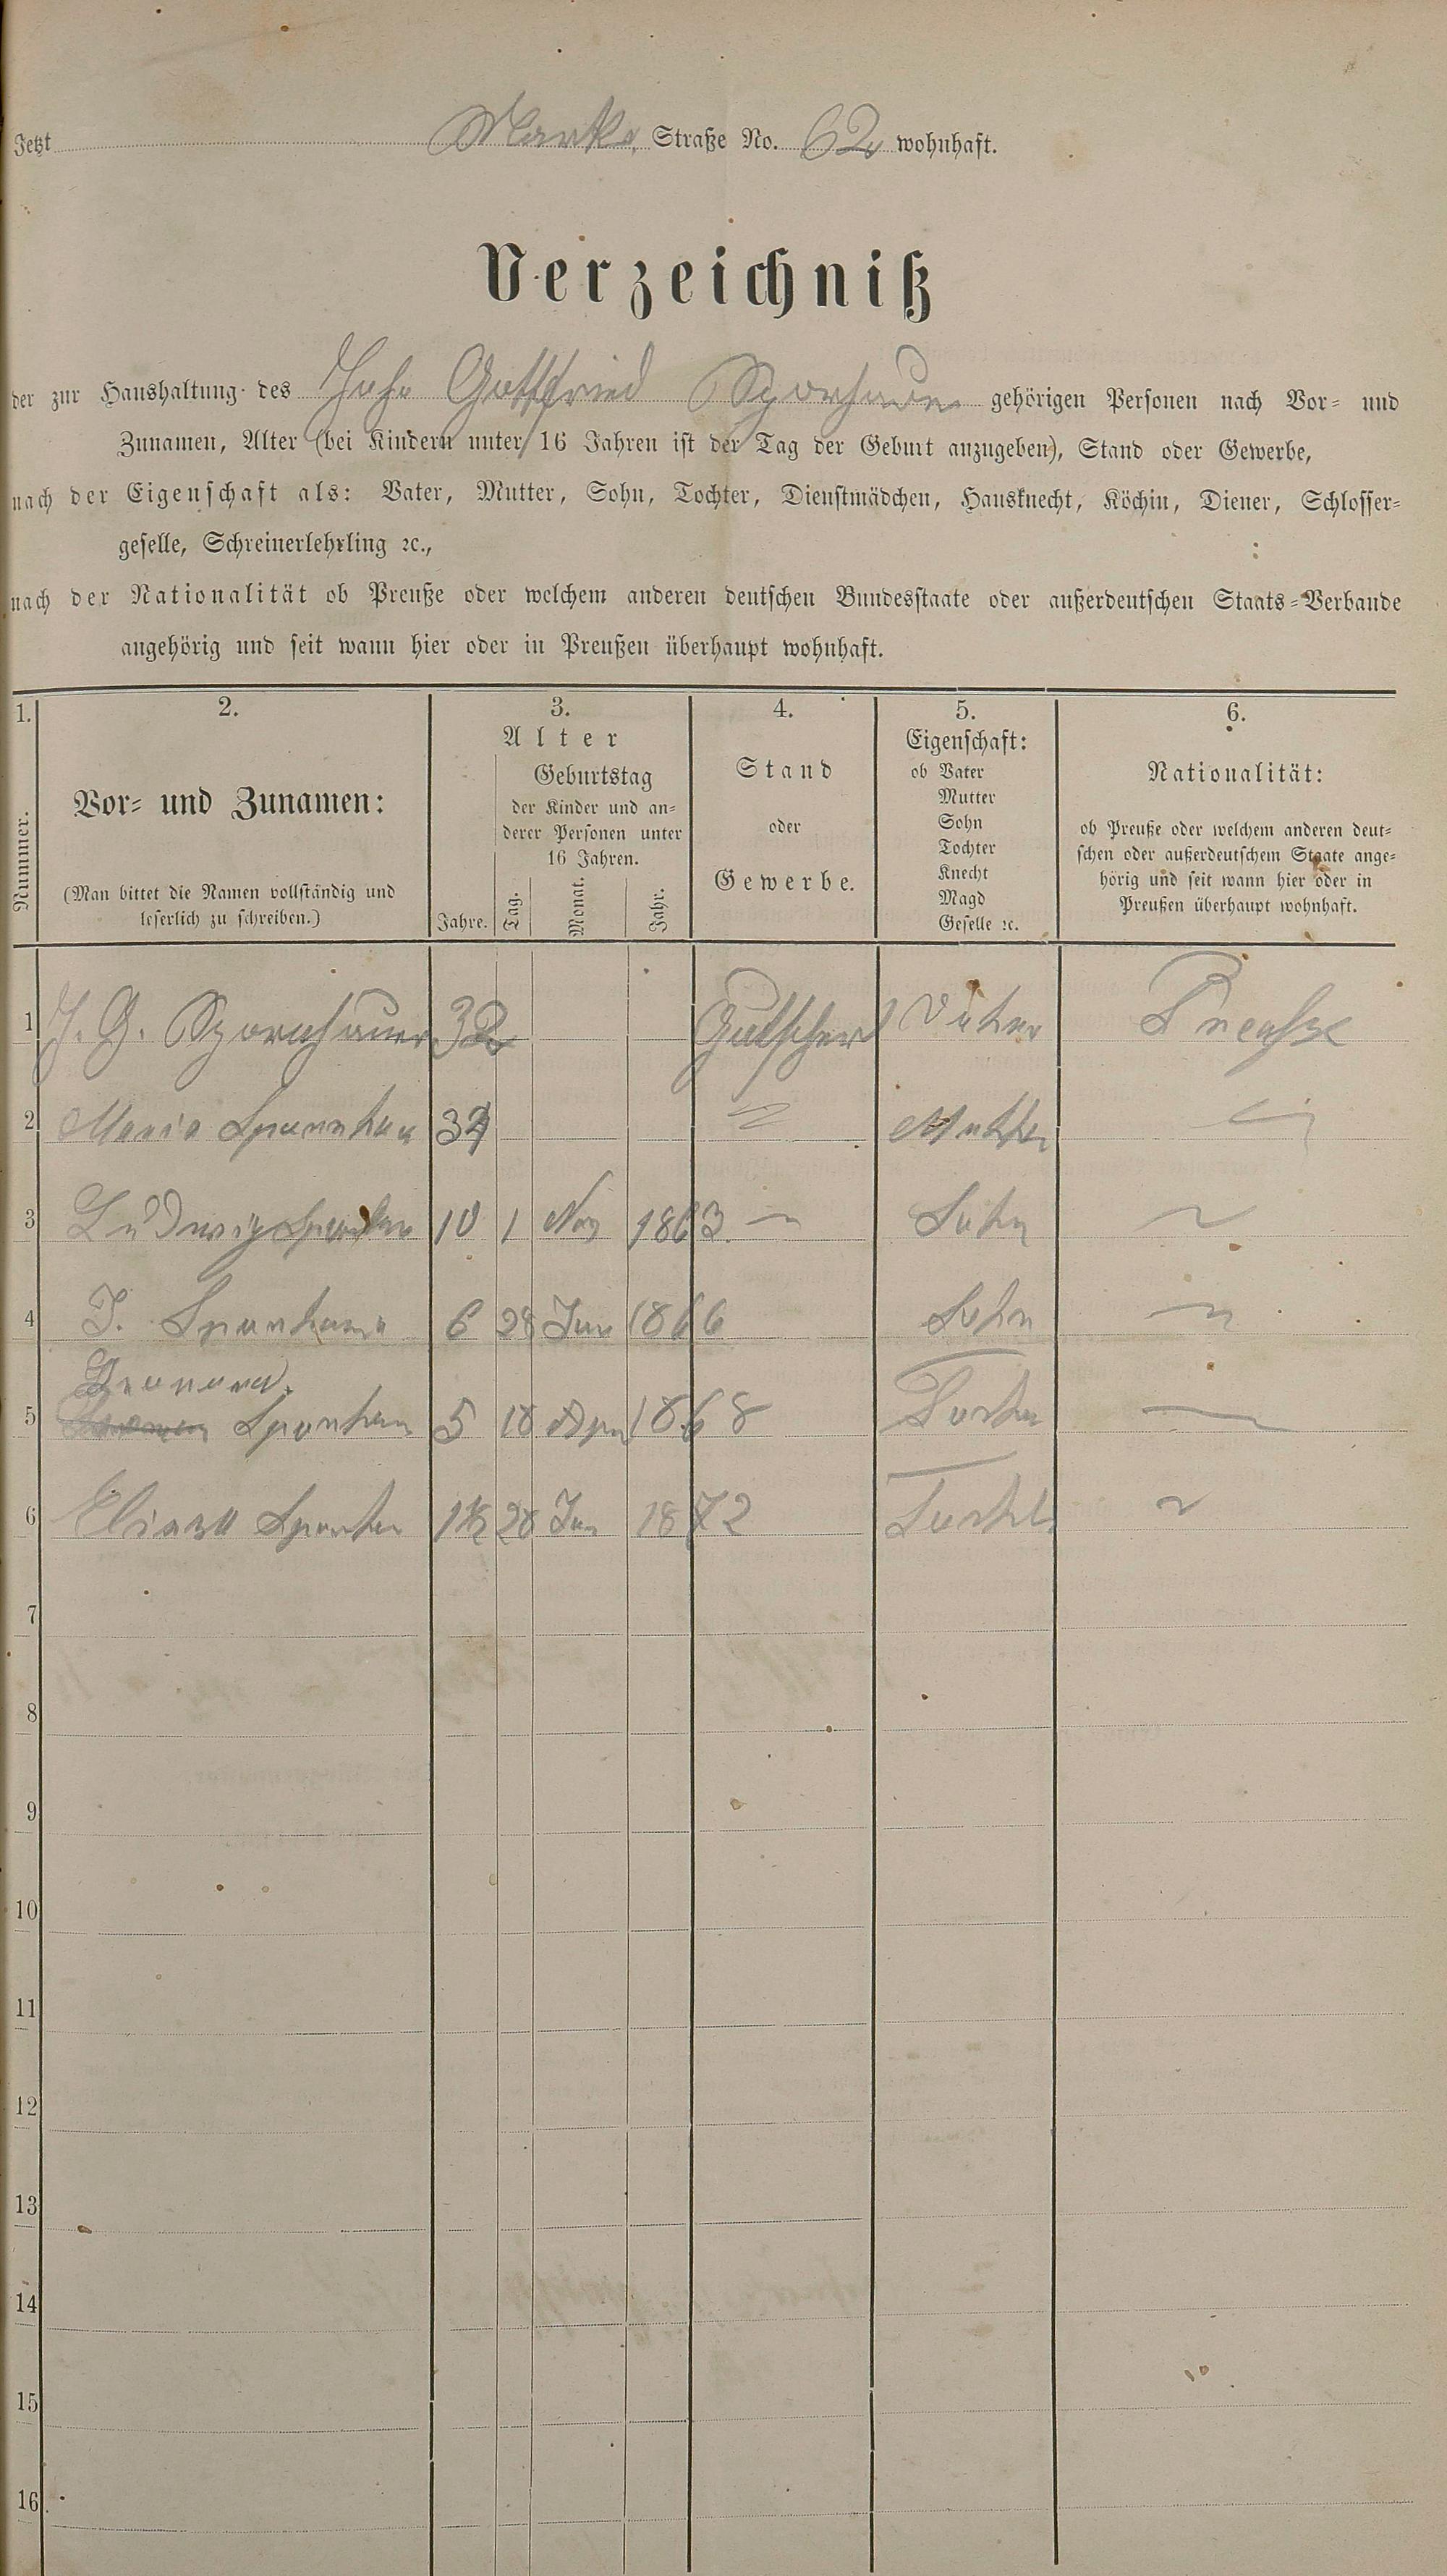 Jetzt Markt Straße No. 62 wohnhaft.
Verzeichniß
der zur Haushaltung des Joh. Gottfried gehörigen Personen nach Vor- und
Zunamen, Alter (bei Kindern unter 16 Jahren ist der Tag der Geburt anzugeben), Stand oder Gewerbe,
nach der Eigenschaft als: Vater, Mutter, Sohn, Tochter, Dienstmädchen, Hausknecht, Köchin, Diener, Schlosser-
geselle, Schreinerlehrling ꝛc.,
nach der Nationalität ob Preuße oder welchem anderen deutschen Bundesstaate oder außerdeutschen Staats-Verbande
angehörig und seit wann hier oder in Preußen überhaupt wohnhaft.
1.
Nummer.
2.
Vor- und Zunamen:
(Man bittet die Namen vollständig und
leserlich zu schreiben.)
3.
Alter
Jahre.
Geburtstag
der Kinder und an-
derer Personen unter
16 Jahren.
Tag.
Monat.
Jahr.
4.
Stand
oder
Gewerbe.
5.
Eigenschaft:
ob Vater
Mutter
Sohn
Tochter
Knecht
Magd
Geselle ꝛc.
6.
Nationalität:
ob Preuße oder welchem anderen deut-
schen oder außerdeutschem Staate ange-
hörig und seit wann hier oder in
Preußen überhaupt wohnhaft.
1 J. G. 32 Vater Preuße
2 Maria Mutter
3 Ludwig 10 1 Nov 1863 Sohn
4 J. 6 28 Jan 1866 Sohn
5 5 18 Apr 1868 Tochter
6 1½ 28 Jan 1872 Tochter
7
8
9
10
11
12
13
14
15
16